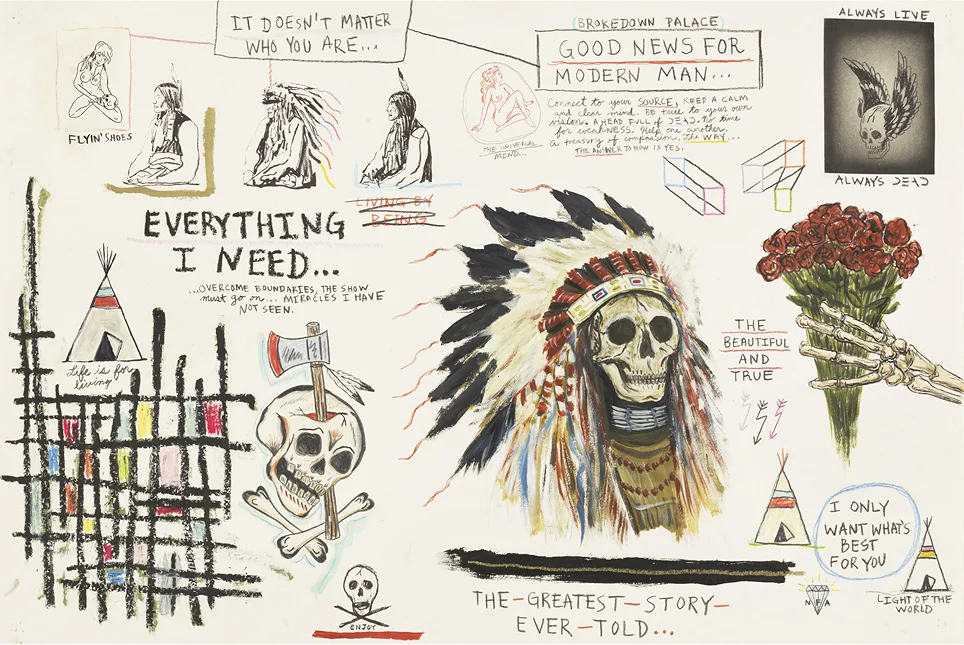 IT DOESN'T MATTER
WHO YOU ARE...
(BROKEDOWN PALACE)
GOOD NEWS FOR
MODERN MAN...
ALWAYS LIVE
FLYIN' SHOES
Connect to your SOURCE, KEEP A CALM
and clear mind. BE true to your own
vision. A HEAD FULL OF DEAD. No time
for weakness. Help one another.
A treasury of compassion. The WAY...
THE ANSWER TO HOW IS YES.
THE UNIVERSAL
MIND...
ALWAYS DEAD
LIVING BY
BEING
EVERYTHING
I NEED...
...OVERCOME BOUNDARIES, THE SHOW
must go on... MIRACLES I HAVE
NOT SEEN.
Life is for
living
THE
BEAUTIFUL
AND
TRUE
I ONLY
WANT WHAT'S
BEST
FOR YOU
LIGHT OF THE
WORLD
ENJOY
THE-GREATEST-STORY-
EVER-TOLD...